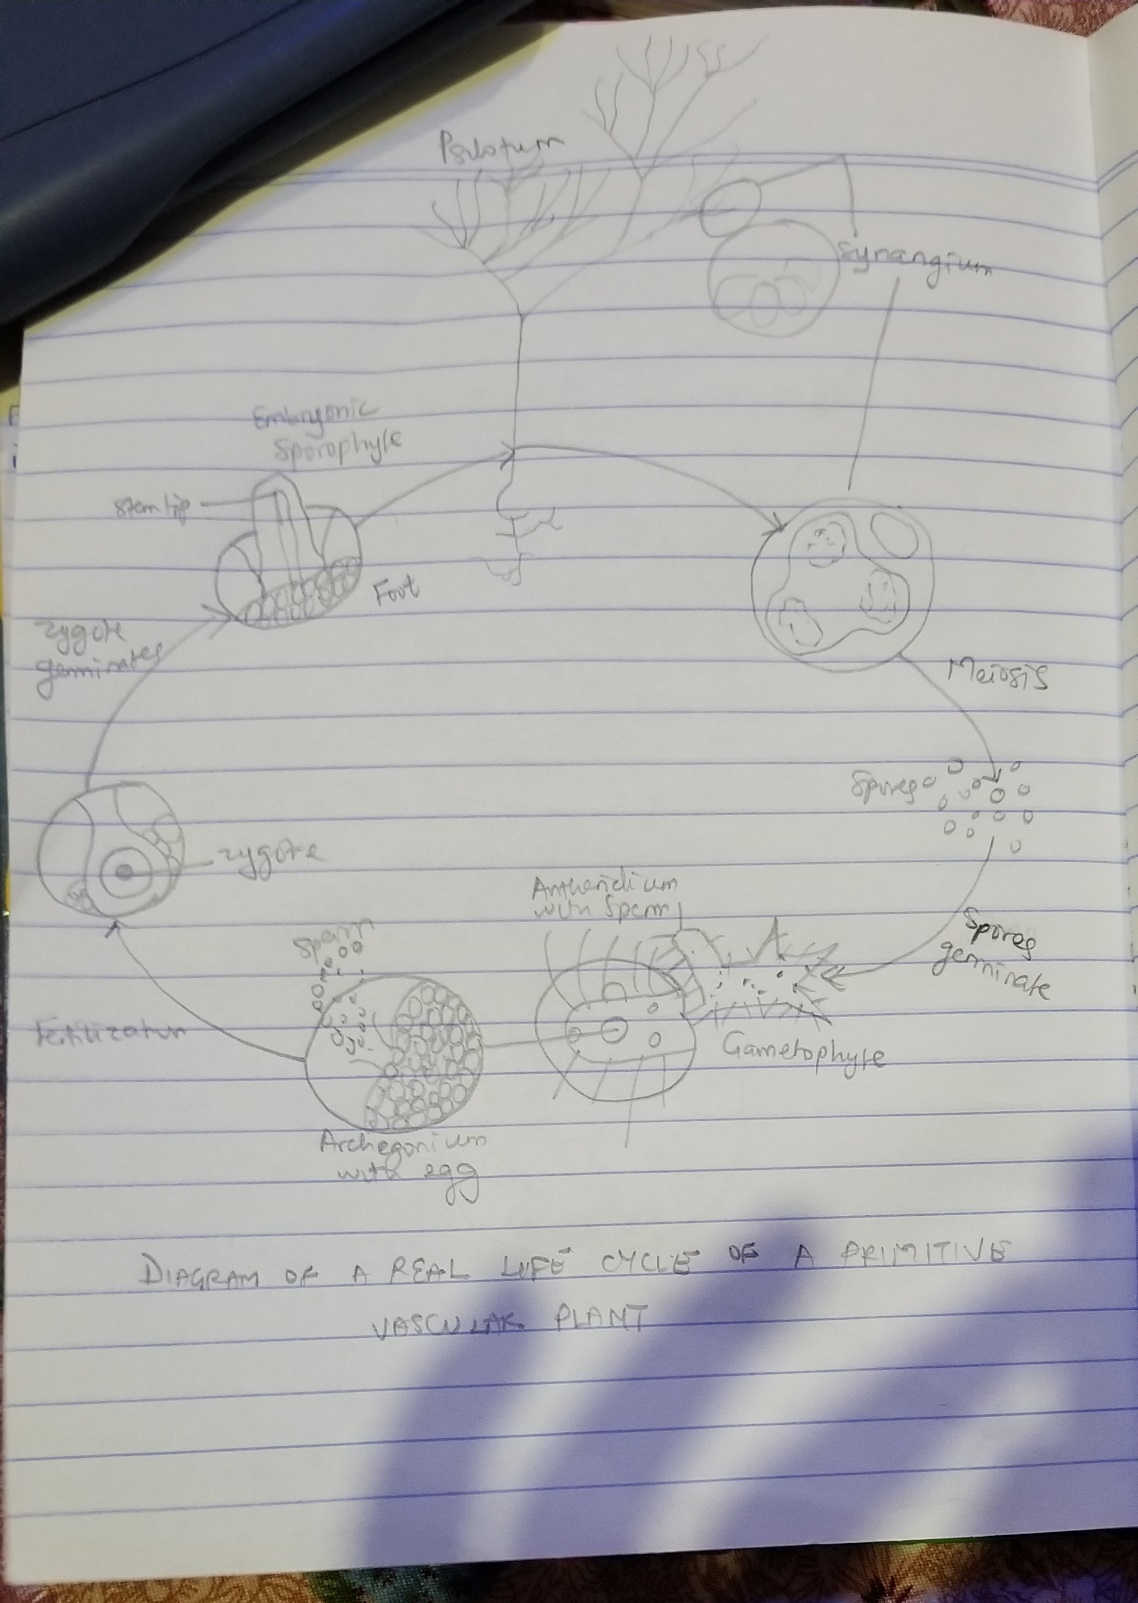 Psilotum
Synangium
Embryonic
Sporophyte
Stem tip
Foot
zygote
germinates
Meiosis
Spores
zygote
Antheridium
with Sperm
Sperm
Spores
germinate
Fertilization
Gametophyte
Archegonium
with egg
DIAGRAM OF A REAL LIFE CYCLE OF A PRIMITIVE
VASCULAR PLANT